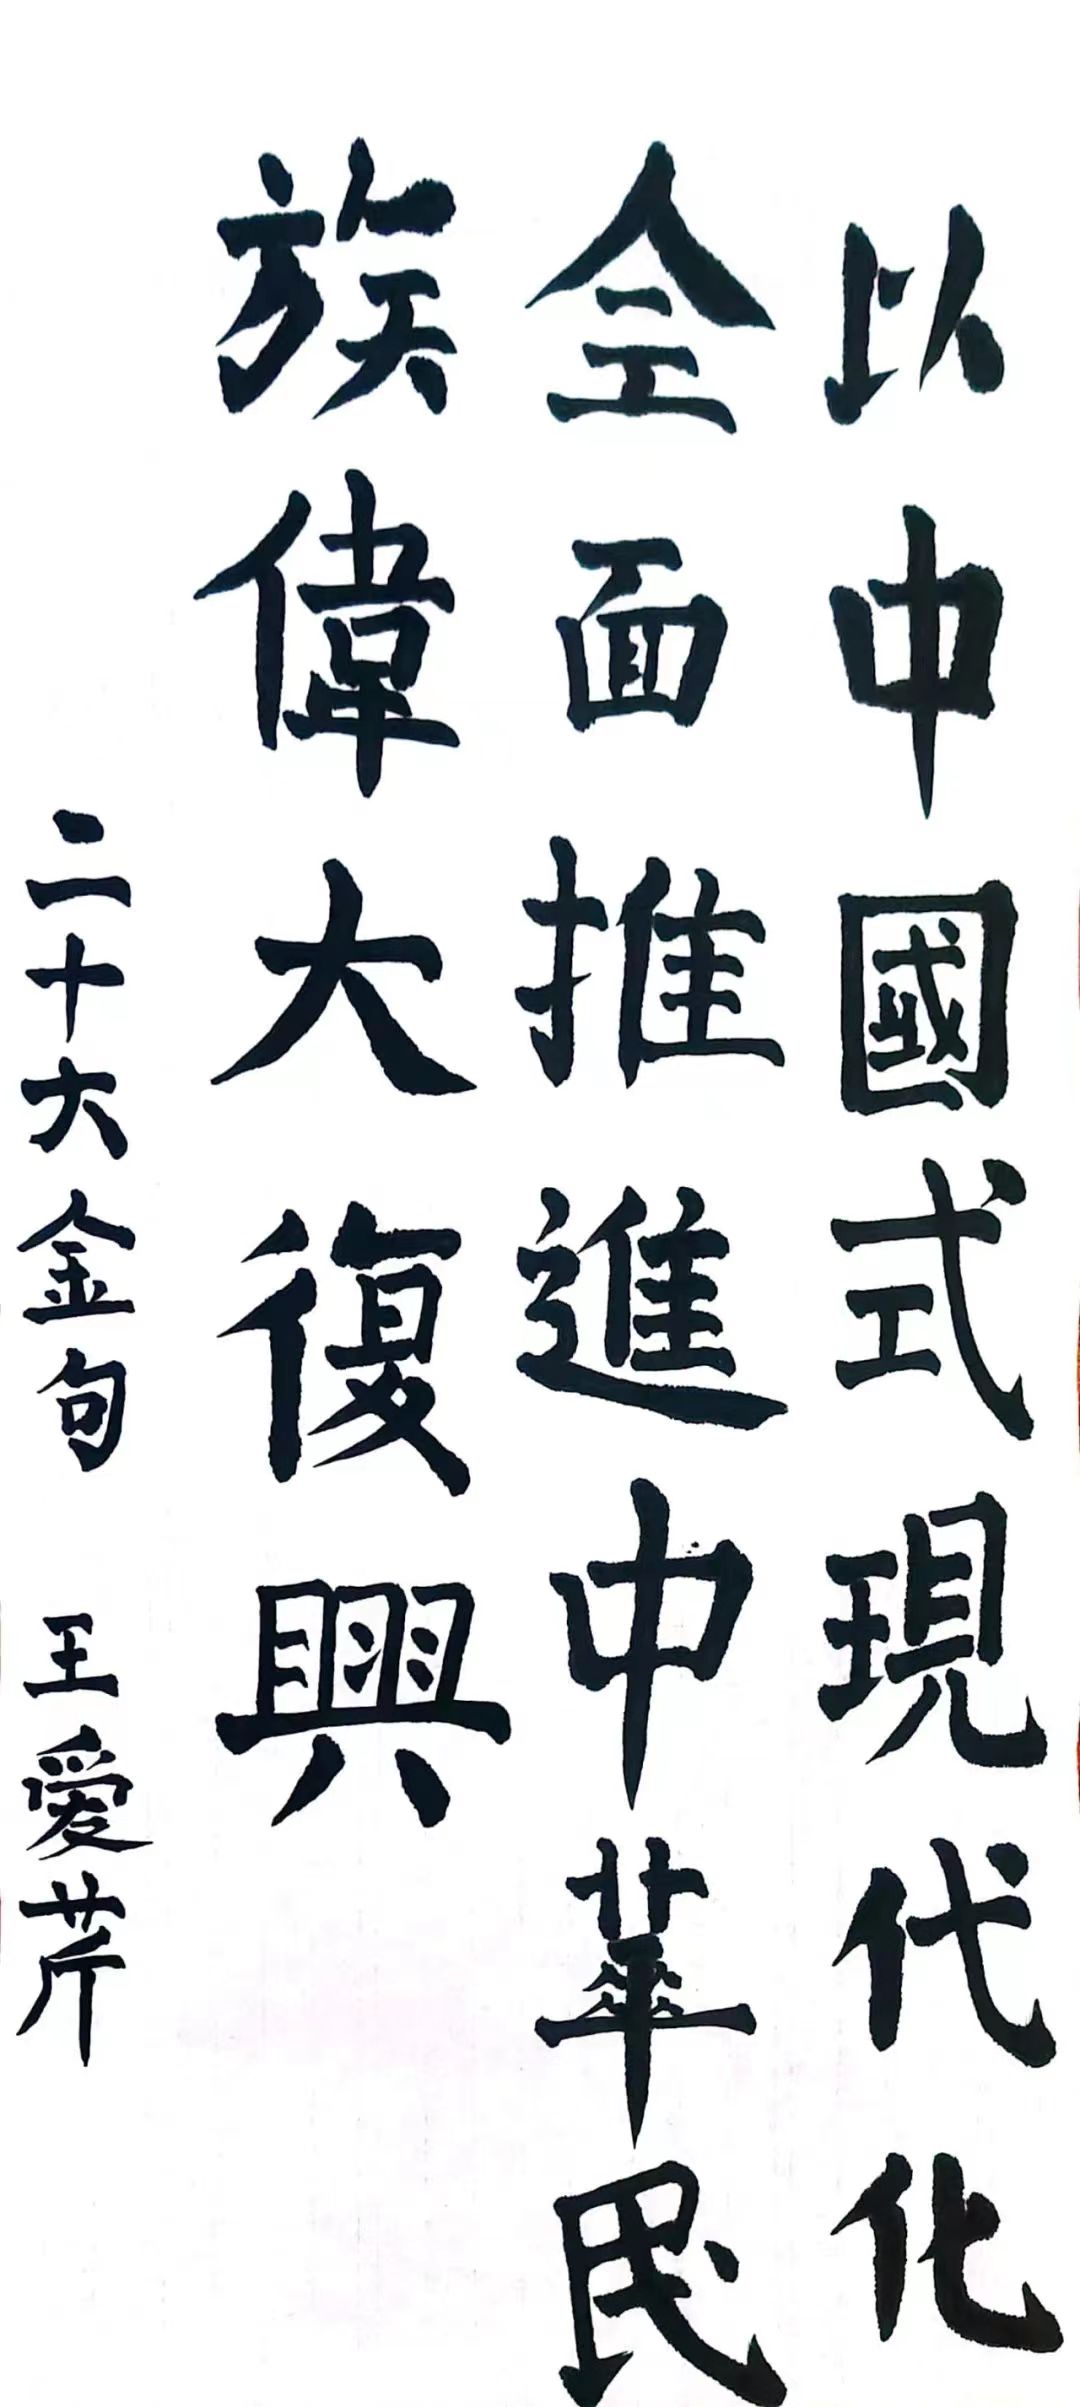 以中國式現代化
全面推進中華民
族偉大復興
二十大金句 王愛芹